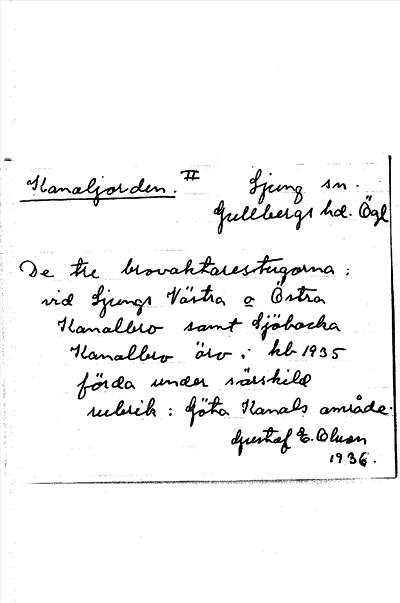 Kanaljorden. II Ljung sn.
Gullbergs hd. Ögl
De tre brovaktarestugorna:
vid Ljungs Västra o Östra
Kanalbro samt Sjöbacka
Kanalbro äro i kb 1935
förda under särskild
rubrik: Göta Kanals område.
Gustaf E. Olsson
1936.